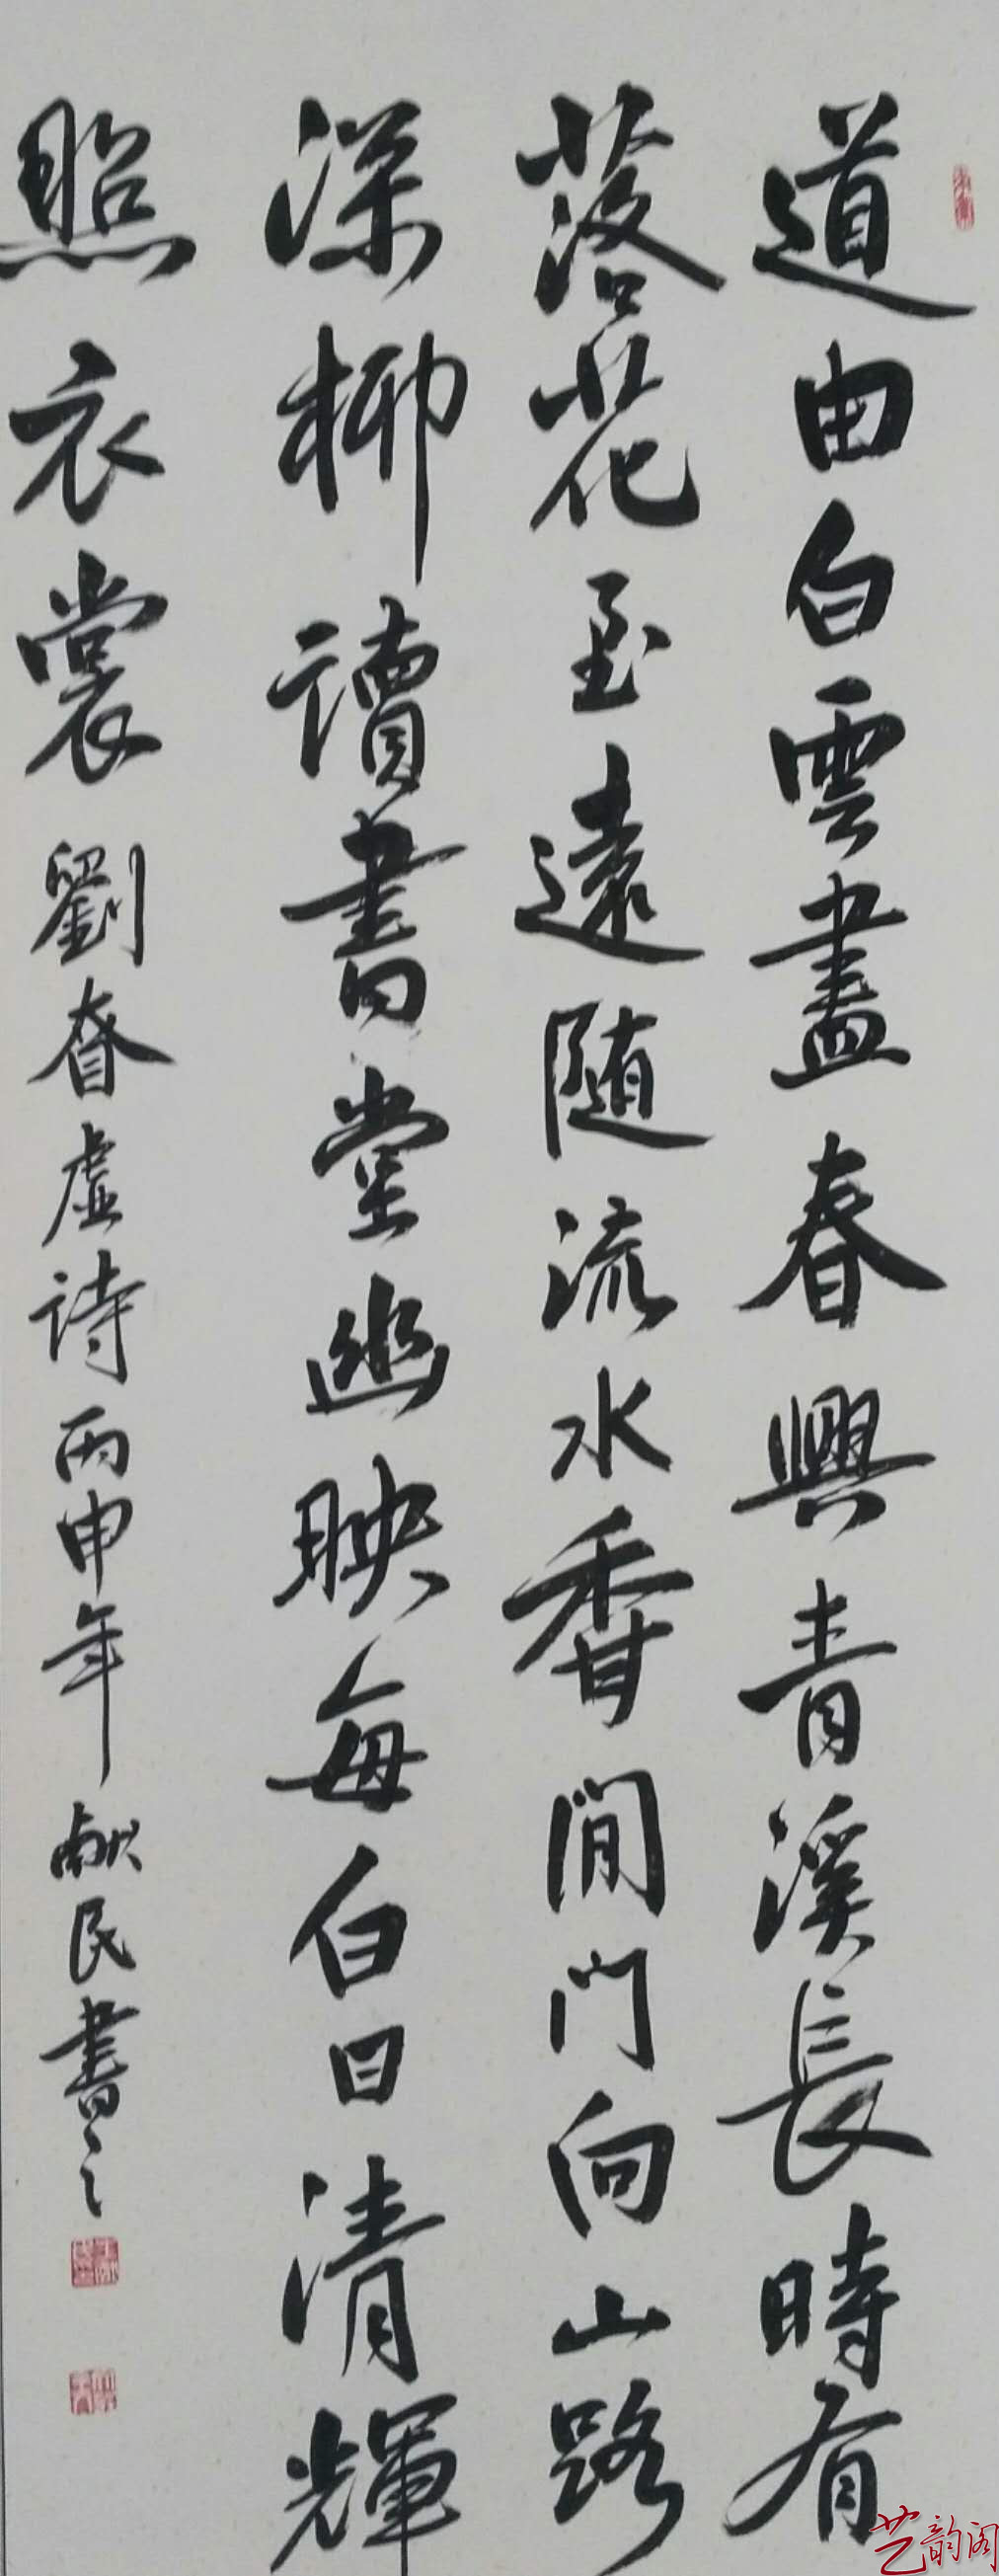 道由白雲盡春興青溪長時有
落花至遠随流水香閒門向山路
深柳讀書堂幽映每白日清輝
照衣裳劉眘虛詩丙申年献民書之
艺韵阁